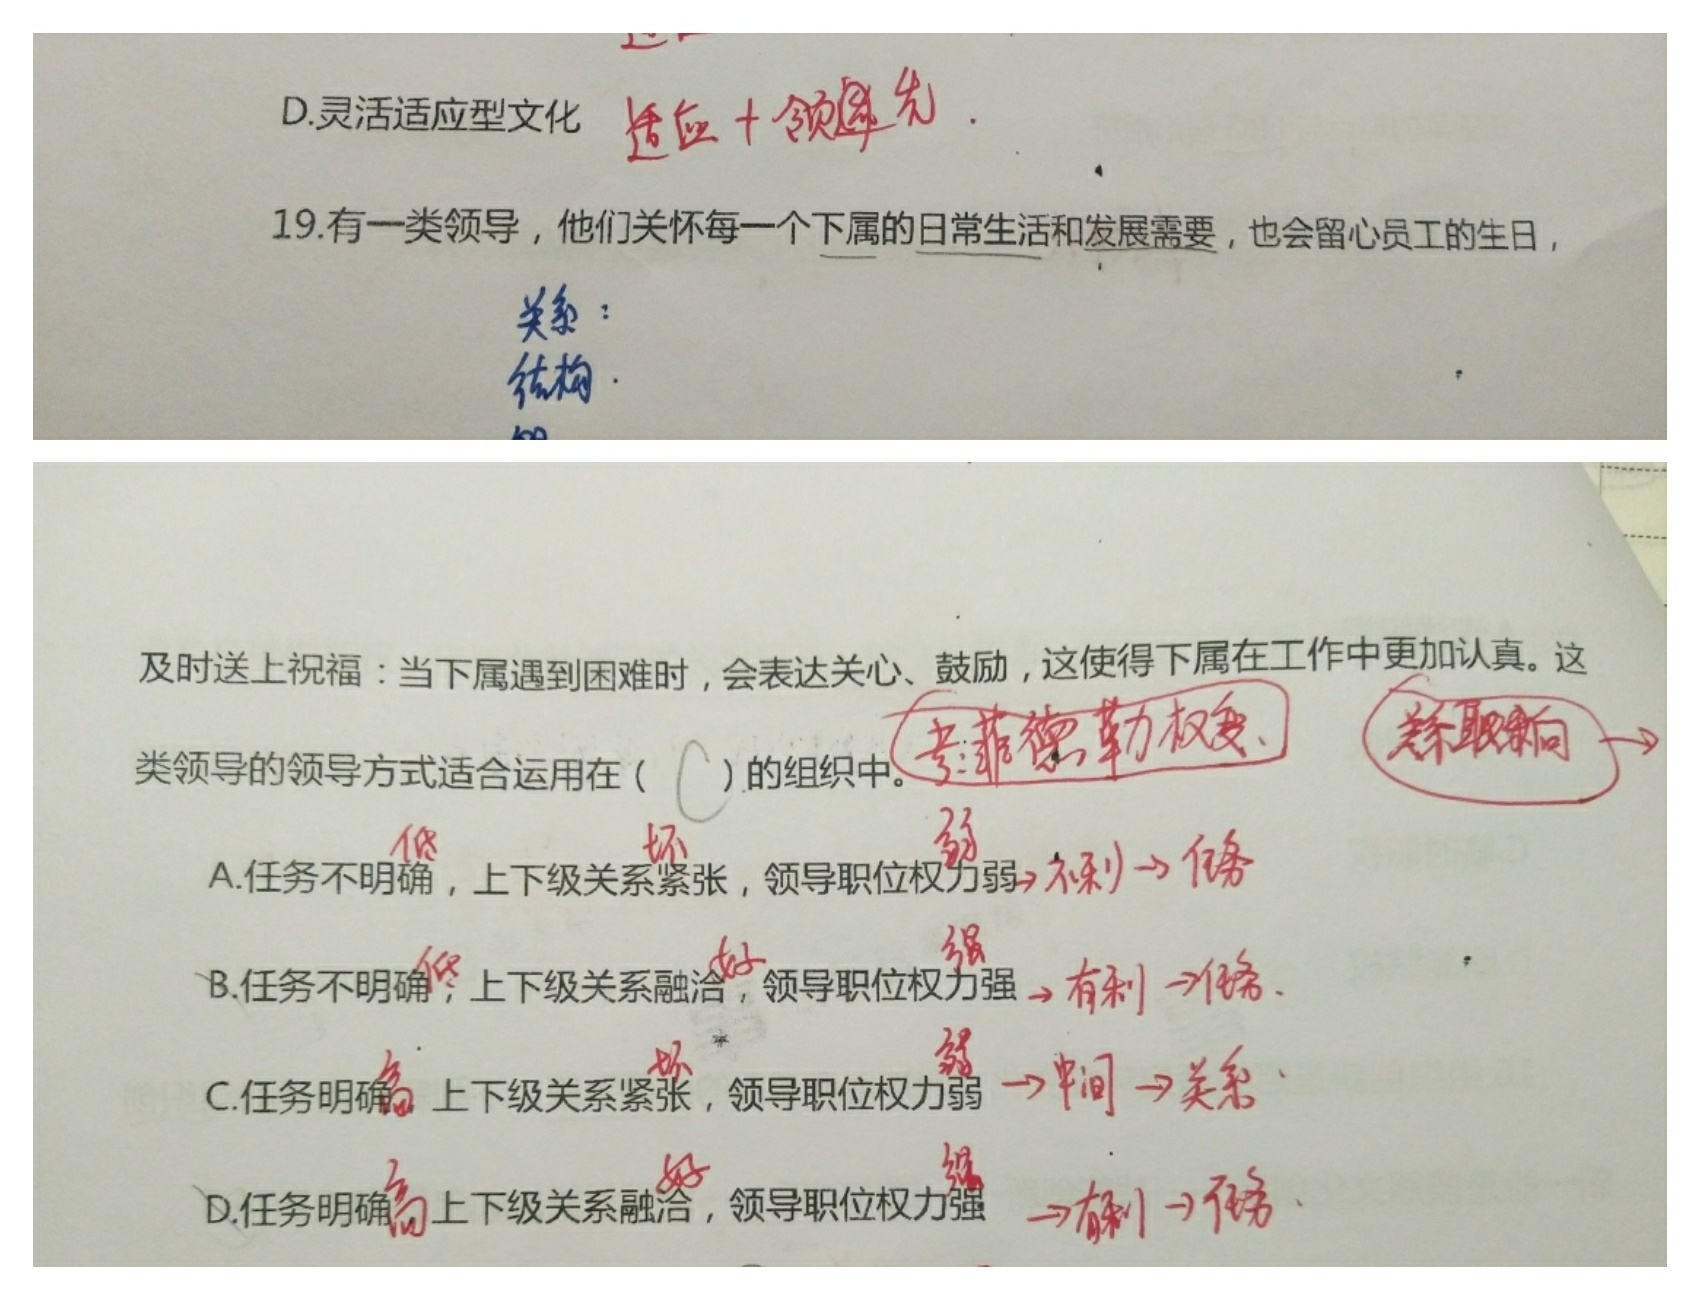 D.灵活适应型文化 适应+领率先.
19.有一类领导，他们关怀每一个下属的日常生活和发展需要，也会留心员工的生日，
关系：
结构.
及时送上祝福：当下属遇到困难时，会表达关心、鼓励，这使得下属在工作中更加认真。这
考:菲德勒权变、 关系取向→
类领导的领导方式适合运用在（ C ）的组织中。
低 坏 弱
A.任务不明确，上下级关系紧张，领导职位权力弱→不利→任务
低 好 强
B.任务不明确，上下级关系融洽，领导职位权力强→有利→任务.
高 坏 弱
C.任务明确 上下级关系紧张，领导职位权力弱→中间→关系.
高 好 强
D.任务明确，上下级关系融洽，领导职位权力强→有利→任务.